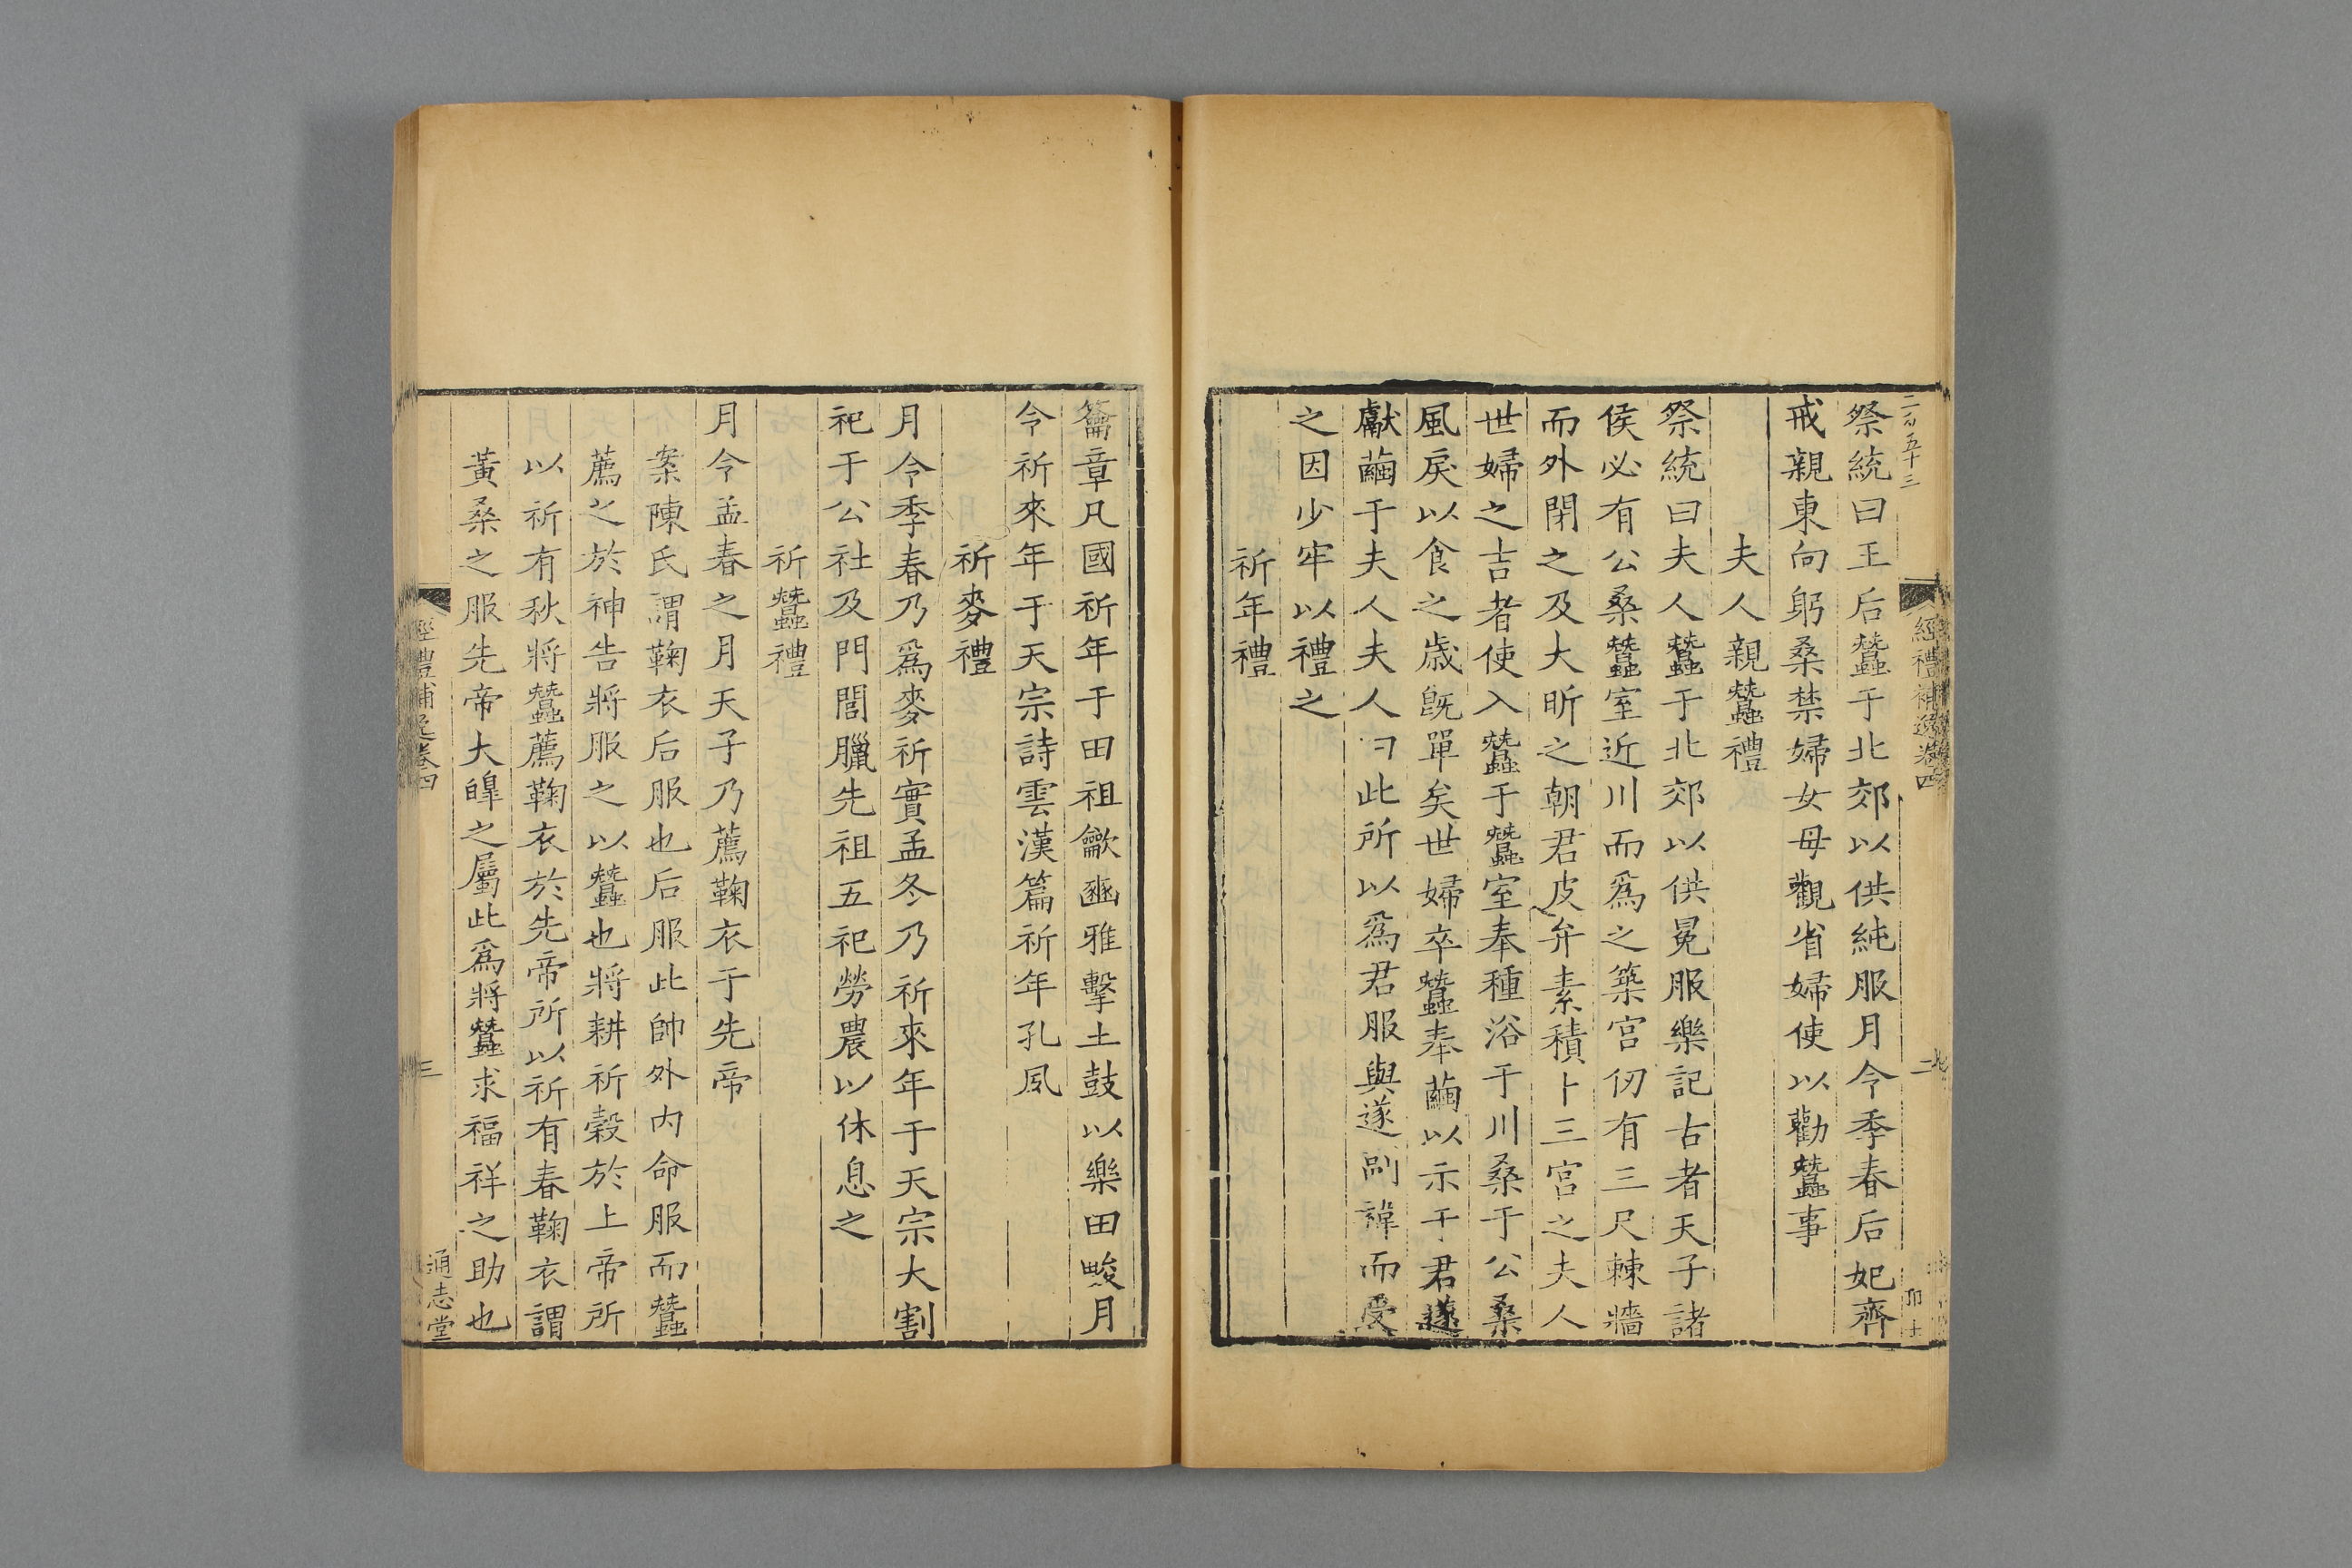 祭統曰王后蠶于北郊以供純服月令季春后妃齊
戒親東向躬桑禁婦女毋觀省婦使以勸蠶事
夫人親蠶禮
祭統曰夫人蠶于北郊以供冕服樂記古者天子諸
侯必有公桑蠶室近川而爲之築宮仞有三尺棘牆
而外閉之及大昕之朝君皮弁素積卜三宮之夫人
世婦之吉者使入蠶于蠶室奉種浴于川桑于公桑
風戾以食之歲旣單矣世婦卒蠶奉繭以示于君遂
獻繭于夫人夫人曰此所以爲君服與遂副褘而受
之因少牢以禮之
祈年禮
經禮補逸卷四
二
籥章凡國祈年于田祖龡豳雅擊土鼓以樂田畯月
令祈來年于天宗詩雲漢篇祈年孔夙
祈麥禮
月令季春乃爲麥祈實孟冬乃祈來年于天宗大割
祀于公社及門閭臘先祖五祀勞農以休息之
祈蠶禮
月令孟春之月天子乃薦鞠衣于先帝
案陳氏謂鞠衣后服也后服此帥外內命服而蠶
薦之於神告將服之以蠶也將耕祈穀於上帝所
以祈有秋將蠶薦鞠衣於先帝所以祈有春鞠衣謂
黃桑之服先帝大皥之屬此爲將蠶求福祥之助也
經禮補逸卷四
三
通志堂